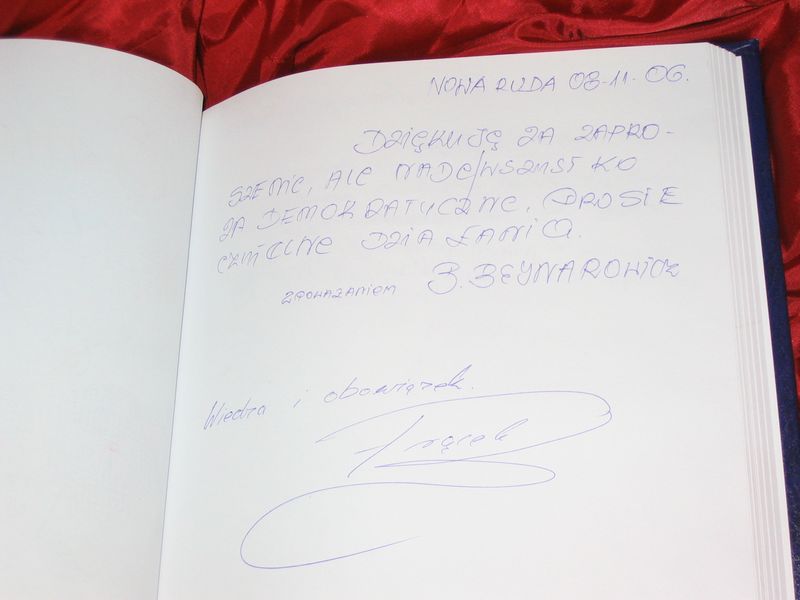 NOWA RUDA 08-11-06.
DZIĘKUJĘ ZA ZAPRO-
SZENIE, ALE NADE/WSZYSTKO
ZA DEMOKRATYCZNE, PROSTE
DZIAŁANIA.
Z POWAŻANIEM B. BEYNAROWICZ
Wiedza i obowiązek.